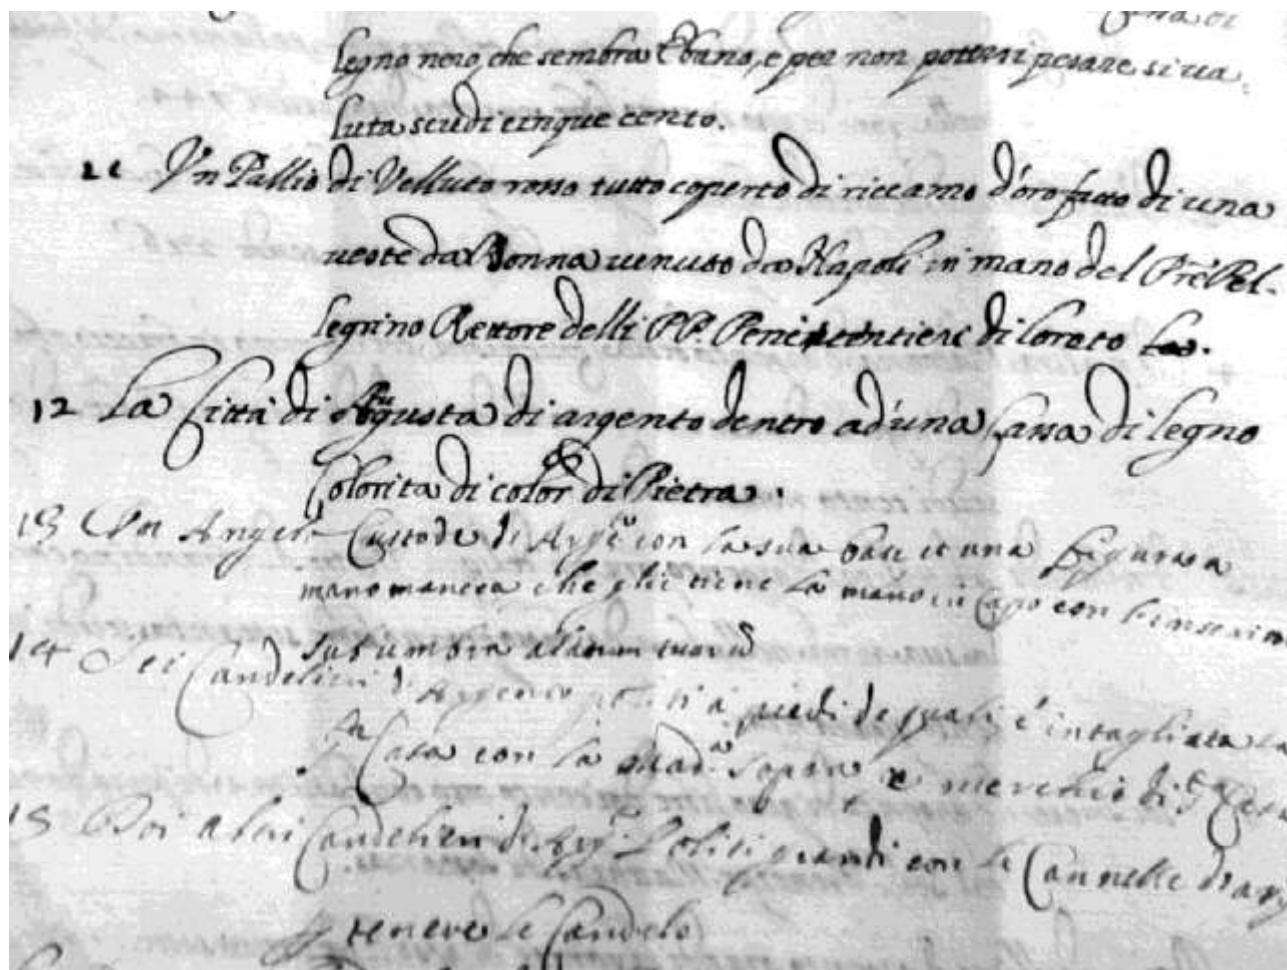 legno nero, che sembra Ebano, e per non potersi pesare si va,
luta scudi cinque cento.
11 Un Pallio di Velluto rosso tutto coperto di riccamo d'oro fatto di una
veste da Donna venuto da Napoli in mano del Prē Pel-
legrino Rettore delli PP. Penitentieri di Loreto
12 La Città di Augusta di argento dentro ad'una Cassa di legno
Colorita di color di Pietra.
13 Un Angelo Custode di Arg.to con la sua base et una figura a
mano manca che gli tiene la mano in Capo con
sub umbra alarum tuarū
14 Sei Candelieri d'Argento a piedi de quali è intagliata la
S.ta Casa con la Mad.a sopra
15 Doi altri Candelieri di Arg.to Politi grandi con le Cannelle d'arg
tenere le Candele